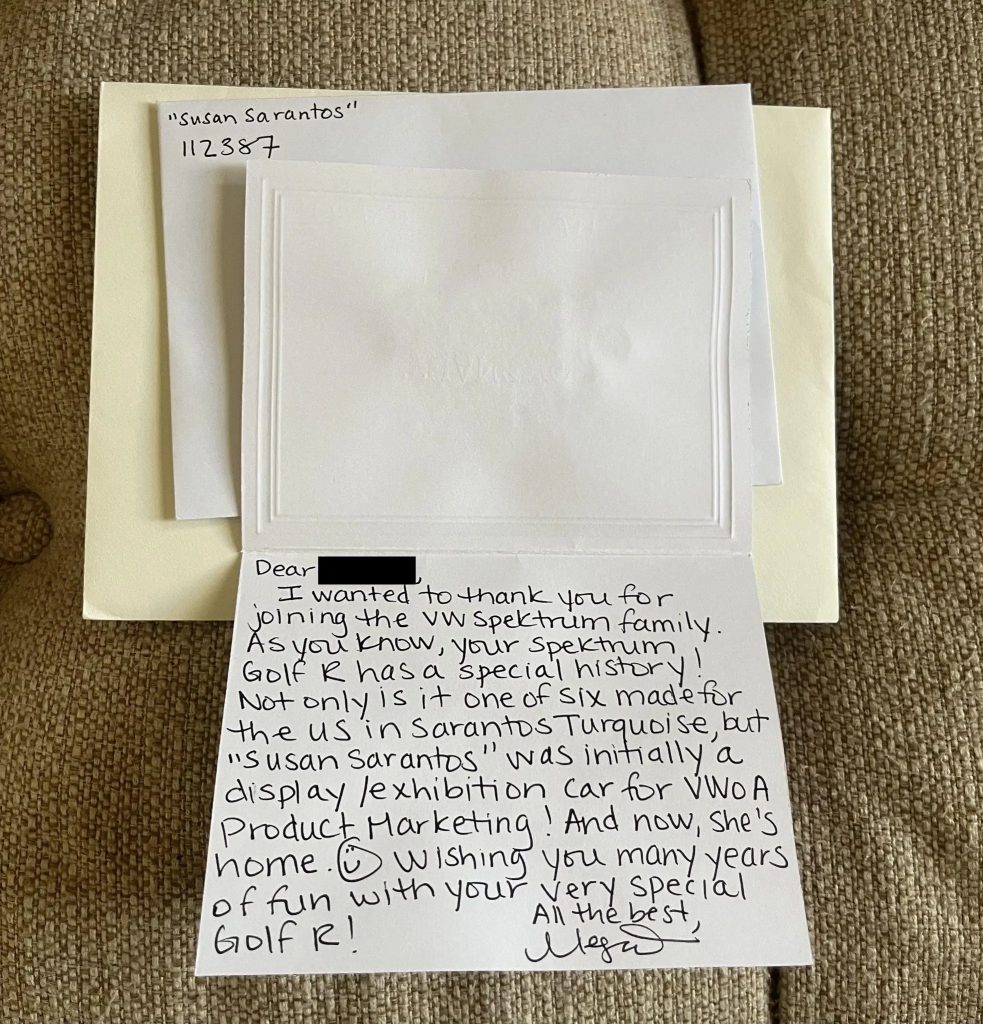 "Susan Sarantos"
112387
Dear
I wanted to thank you for
joining the VW Spektrum family.
As you know, your Spektrum
Golf R has a special history!
Not only is it one of six made for
the US in Sarantos Turquoise, but
"Susan Sarantos" was initially a
display/exhibition car for VWoA
Product Marketing! And now, she's
home. Wishing you many years
of fun with your very special
Golf R!
All the best,